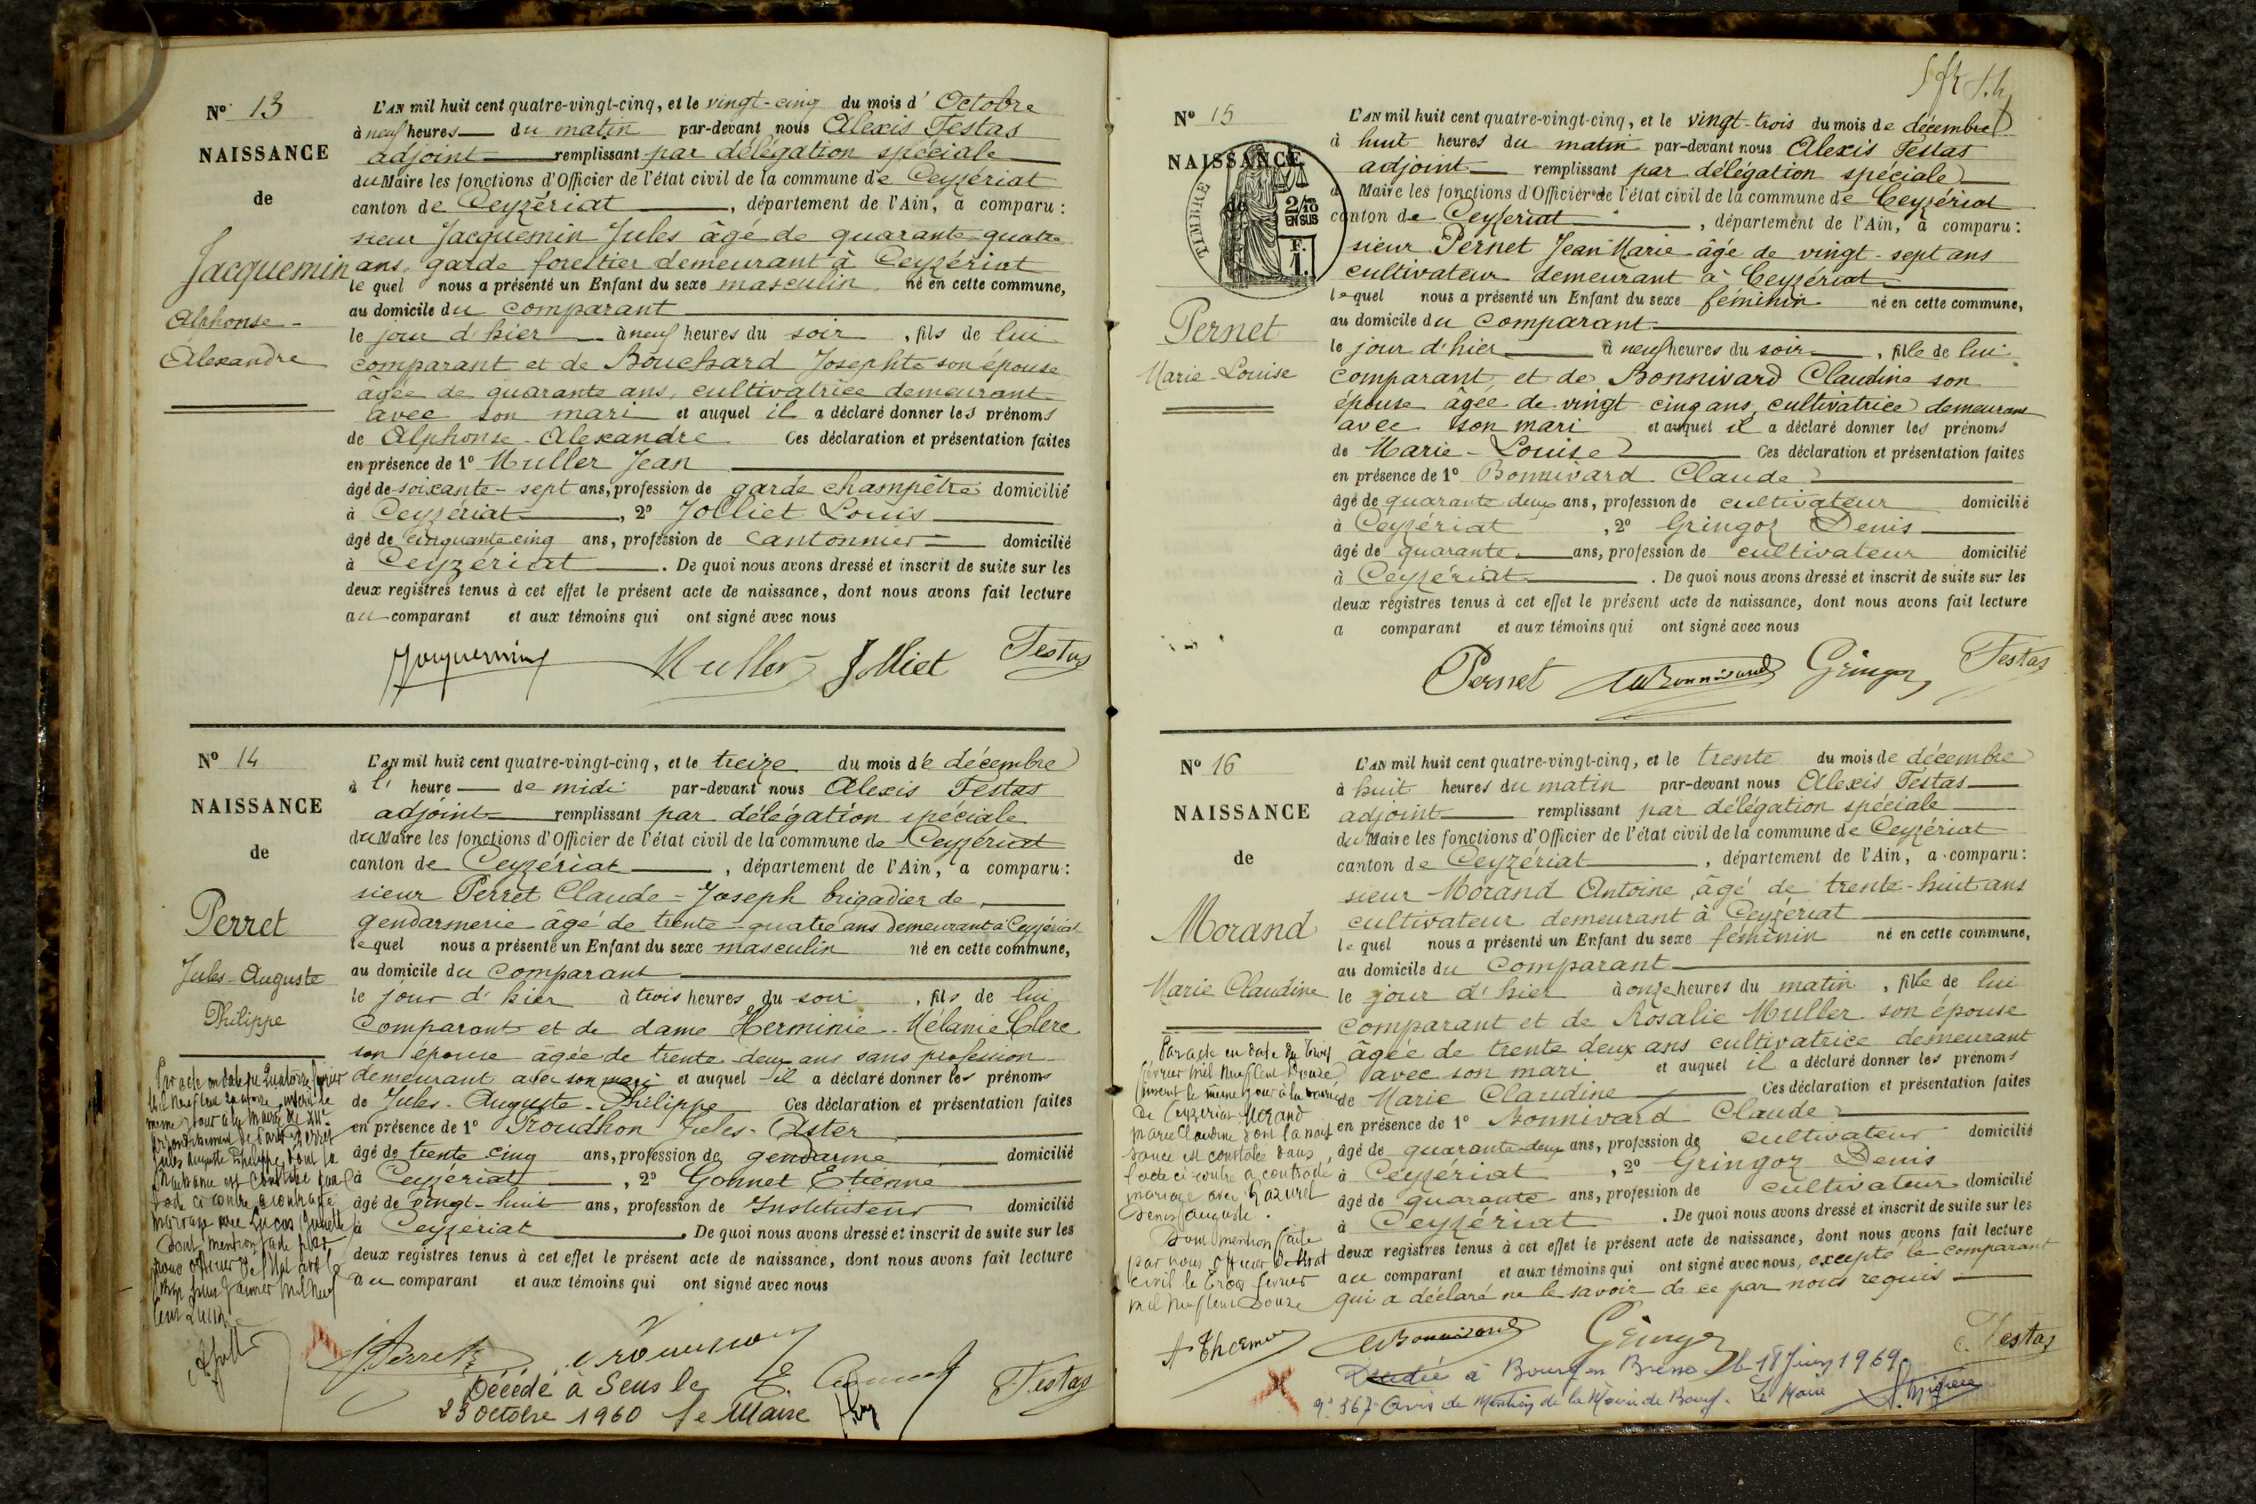 Nº 13
NAISSANCE
de
Jacquemin
Alphonse-
Alexandre
L'AN mil huit cent quatre-vingt-cinq, et le vingt-cinq du mois d' Octobre
à neuf heures du matin par-devant nous Alexis Testas
adjoint remplissant par délégation spéciale
du Maire les fonctions d'Officier de l'état civil de la commune de Ceyzériat
canton de Ceyzériat, département de l'Ain, a comparu :
sieur Jacquemin Jules âgé de quarante-quatre
ans, garde forestier demeurant à Ceyzériat
lequel nous a présenté un Enfant du sexe masculin né en cette commune,
au domicile du comparant
le jour d'hier à neuf heures du soir, fils de lui
comparant et de Bouchard Josephte son épouse
âgée de quarante ans, cultivatrice demeurant
avec son mari et auquel il a déclaré donner les prénoms
de Alphonse-Alexandre Ces déclaration et présentation faites
en présence de 1º Muller Jean
âgé de soixante-sept ans, profession de garde champêtre domicilié
à Ceyzériat, 2º Jolliet Louis
âgé de cinquante cinq ans, profession de cantonnier domicilié
à Ceyzériat. De quoi nous avons dressé et inscrit de suite sur les
deux registres tenus à cet effet le présent acte de naissance, dont nous avons fait lecture
au comparant et aux témoins qui ont signé avec nous
Jacquemin Muller Jolliet Testas
Nº 14
NAISSANCE
de
Perret
Jules-Auguste
Philippe
L'AN mil huit cent quatre-vingt-cinq, et le treize du mois de décembre
à l' heure de midi par-devant nous Alexis Testas
adjoint remplissant par délégation spéciale
du Maire les fonctions d'Officier de l'état civil de la commune de Ceyzériat
canton de Ceyzériat, département de l'Ain, a comparu :
sieur Perret Claude-Joseph brigadier de
gendarmerie âgé de trente-quatre ans demeurant à Ceyzériat
lequel nous a présenté un Enfant du sexe masculin né en cette commune,
au domicile du comparant
le jour d'hier à trois heures du soir, fils de lui
comparant et de dame Herminie-Mélanie Clerc
son épouse âgée de trente deux ans sans profession
demeurant avec son mari et auquel il a déclaré donner les prénoms
de Jules-Auguste-Philippe Ces déclaration et présentation faites
en présence de 1º Jules-
âgé de trente cinq ans, profession de gendarme domicilié
à Ceyzériat, 2º Gonnet Etienne
âgé de vingt-huit ans, profession de Instituteur domicilié
à Ceyzériat. De quoi nous avons dressé et inscrit de suite sur les
deux registres tenus à cet effet le présent acte de naissance, dont nous avons fait lecture
au comparant et aux témoins qui ont signé avec nous
Par acte en date du Quatorze
Mil neuf cent
même jour à la Mairie du
arrondissement de Perret
Jules Auguste Philippe dont la
naissance est constatée
ci contre a contracté
mariage avec
Dont mention faite par
nous officier de l'état civil le
Janvier Mil neuf
cent
Perret
Testas
Décédé à Sens le
23 octobre 1960 Le Maire
Nº 15
NAISSANCE
de
TIMBRE
2/10
EN SUS
F.
1.
Pernet
Marie-Louise
L'AN mil huit cent quatre-vingt-cinq, et le vingt-trois du mois de décembre
à huit heures du matin par-devant nous Alexis Testas
adjoint remplissant par délégation spéciale
Maire les fonctions d'Officier de l'état civil de la commune de Ceyzériat
canton de Ceyzériat, département de l'Ain, a comparu :
sieur Pernet Jean Marie âgé de vingt-sept ans
cultivateur demeurant à Ceyzériat
lequel nous a présenté un Enfant du sexe féminin né en cette commune,
au domicile du comparant
le jour d'hier à neuf heures du soir, fille de lui
comparant et de Bonnivard Claudine son
épouse âgée de vingt cinq ans, cultivatrice demeurant
avec son mari et auquel il a déclaré donner les prénoms
de Marie-Louise Ces déclaration et présentation faites
en présence de 1º Bonnivard Claude
âgé de quarante deux ans, profession de cultivateur domicilié
à Ceyzériat, 2º Gringoz Denis
âgé de quarante ans, profession de cultivateur domicilié
à Ceyzériat. De quoi nous avons dressé et inscrit de suite sur les
deux registres tenus à cet effet le présent acte de naissance, dont nous avons fait lecture
a comparant et aux témoins qui ont signé avec nous
Pernet Bonnivard Gringoz Testas
Nº 16
NAISSANCE
de
Morand
Marie Claudine
L'AN mil huit cent quatre-vingt-cinq, et le trente du mois de décembre
à huit heures du matin par-devant nous Alexis Testas
adjoint remplissant par délégation spéciale
du Maire les fonctions d'Officier de l'état civil de la commune de Ceyzériat
canton de Ceyzériat, département de l'Ain, a comparu :
sieur Morand Antoine âgé de trente-huit ans
cultivateur demeurant à Ceyzériat
lequel nous a présenté un Enfant du sexe féminin né en cette commune,
au domicile du comparant
le jour d'hier à onze heures du matin, fille de lui
comparant et de Rosalie Muller son épouse
âgée de trente deux ans cultivatrice demeurant
avec son mari et auquel il a déclaré donner les prénoms
de Marie Claudine Ces déclaration et présentation faites
en présence de 1º Bonnivard Claude
âgé de quarante-deux ans, profession de cultivateur domicilié
à Ceyzériat, 2º Gringoz Denis
âgé de quarante ans, profession de cultivateur domicilié
à Ceyzériat. De quoi nous avons dressé et inscrit de suite sur les
deux registres tenus à cet effet le présent acte de naissance, dont nous avons fait lecture
au comparant et aux témoins qui ont signé avec nous, excepté le comparant
qui a déclaré ne le savoir de ce par nous requis
Par acte en date du trois
février mil neuf cent Douze
inscrit le même jour à la mairie
de Ceyzeriat Morand
Marie Claudine dont la nais
sance est constatée dans
l'acte ci-contre a contracté
mariage avec
Denis Auguste.
Dont mention faite
par nous officier de l'état
civil le trois février
mil neuf cent Douze
Bonnivard Gringoz Testas
Décédée à Bourg en Bresse le 18 Juin 1969
nº 367 Avis de Mention de la Mairie de Bourg. Le Maire